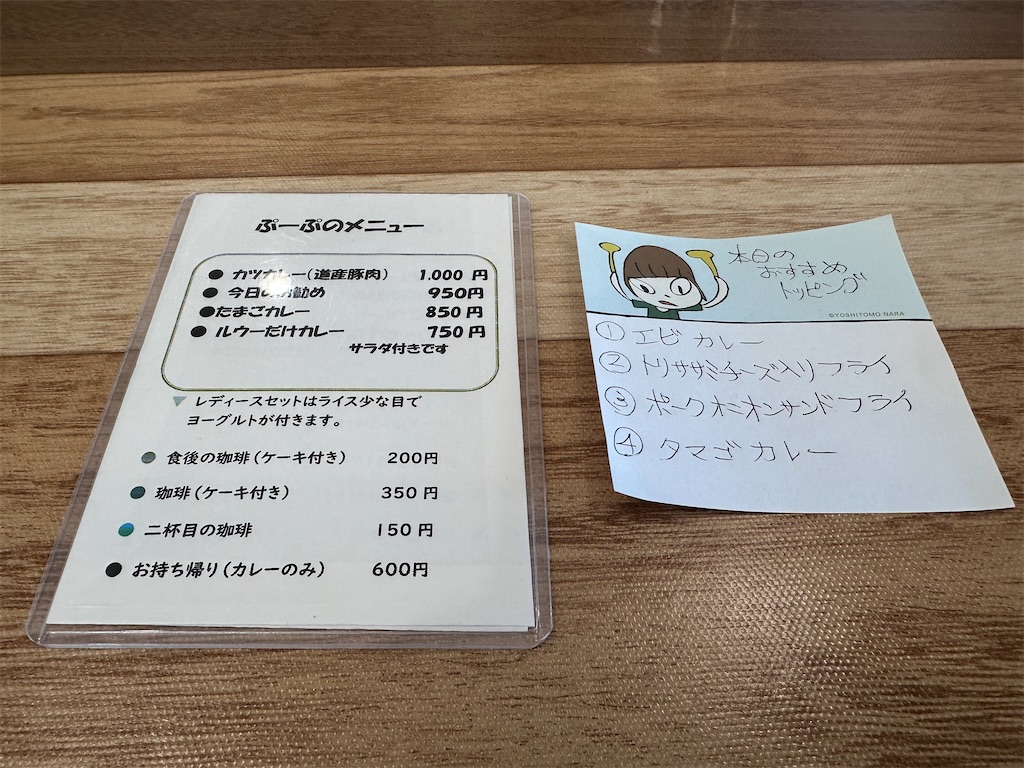 ぷーぷのメニュー
● カツカレー（道産豚肉） 1.000 円
● 今日のお勧め 950円
●たまごカレー 850円
● ルウーだけカレー 750円
サラダ付きです
▼ レディースセットはライス少な目で
ヨーグルトが付きます。
● 食後の珈琲（ケーキ付き） 200円
● 珈琲（ケーキ付き） 350円
● 二杯目の珈琲 150円
● お持ち帰り（カレーのみ） 600円
本日の
おすすめ
トッピング
©YOSHITOMO NARA
① エビカレー
② トリササミチーズ入リフライ
③ ポークオニオンサンドフライ
④ タマゴカレー